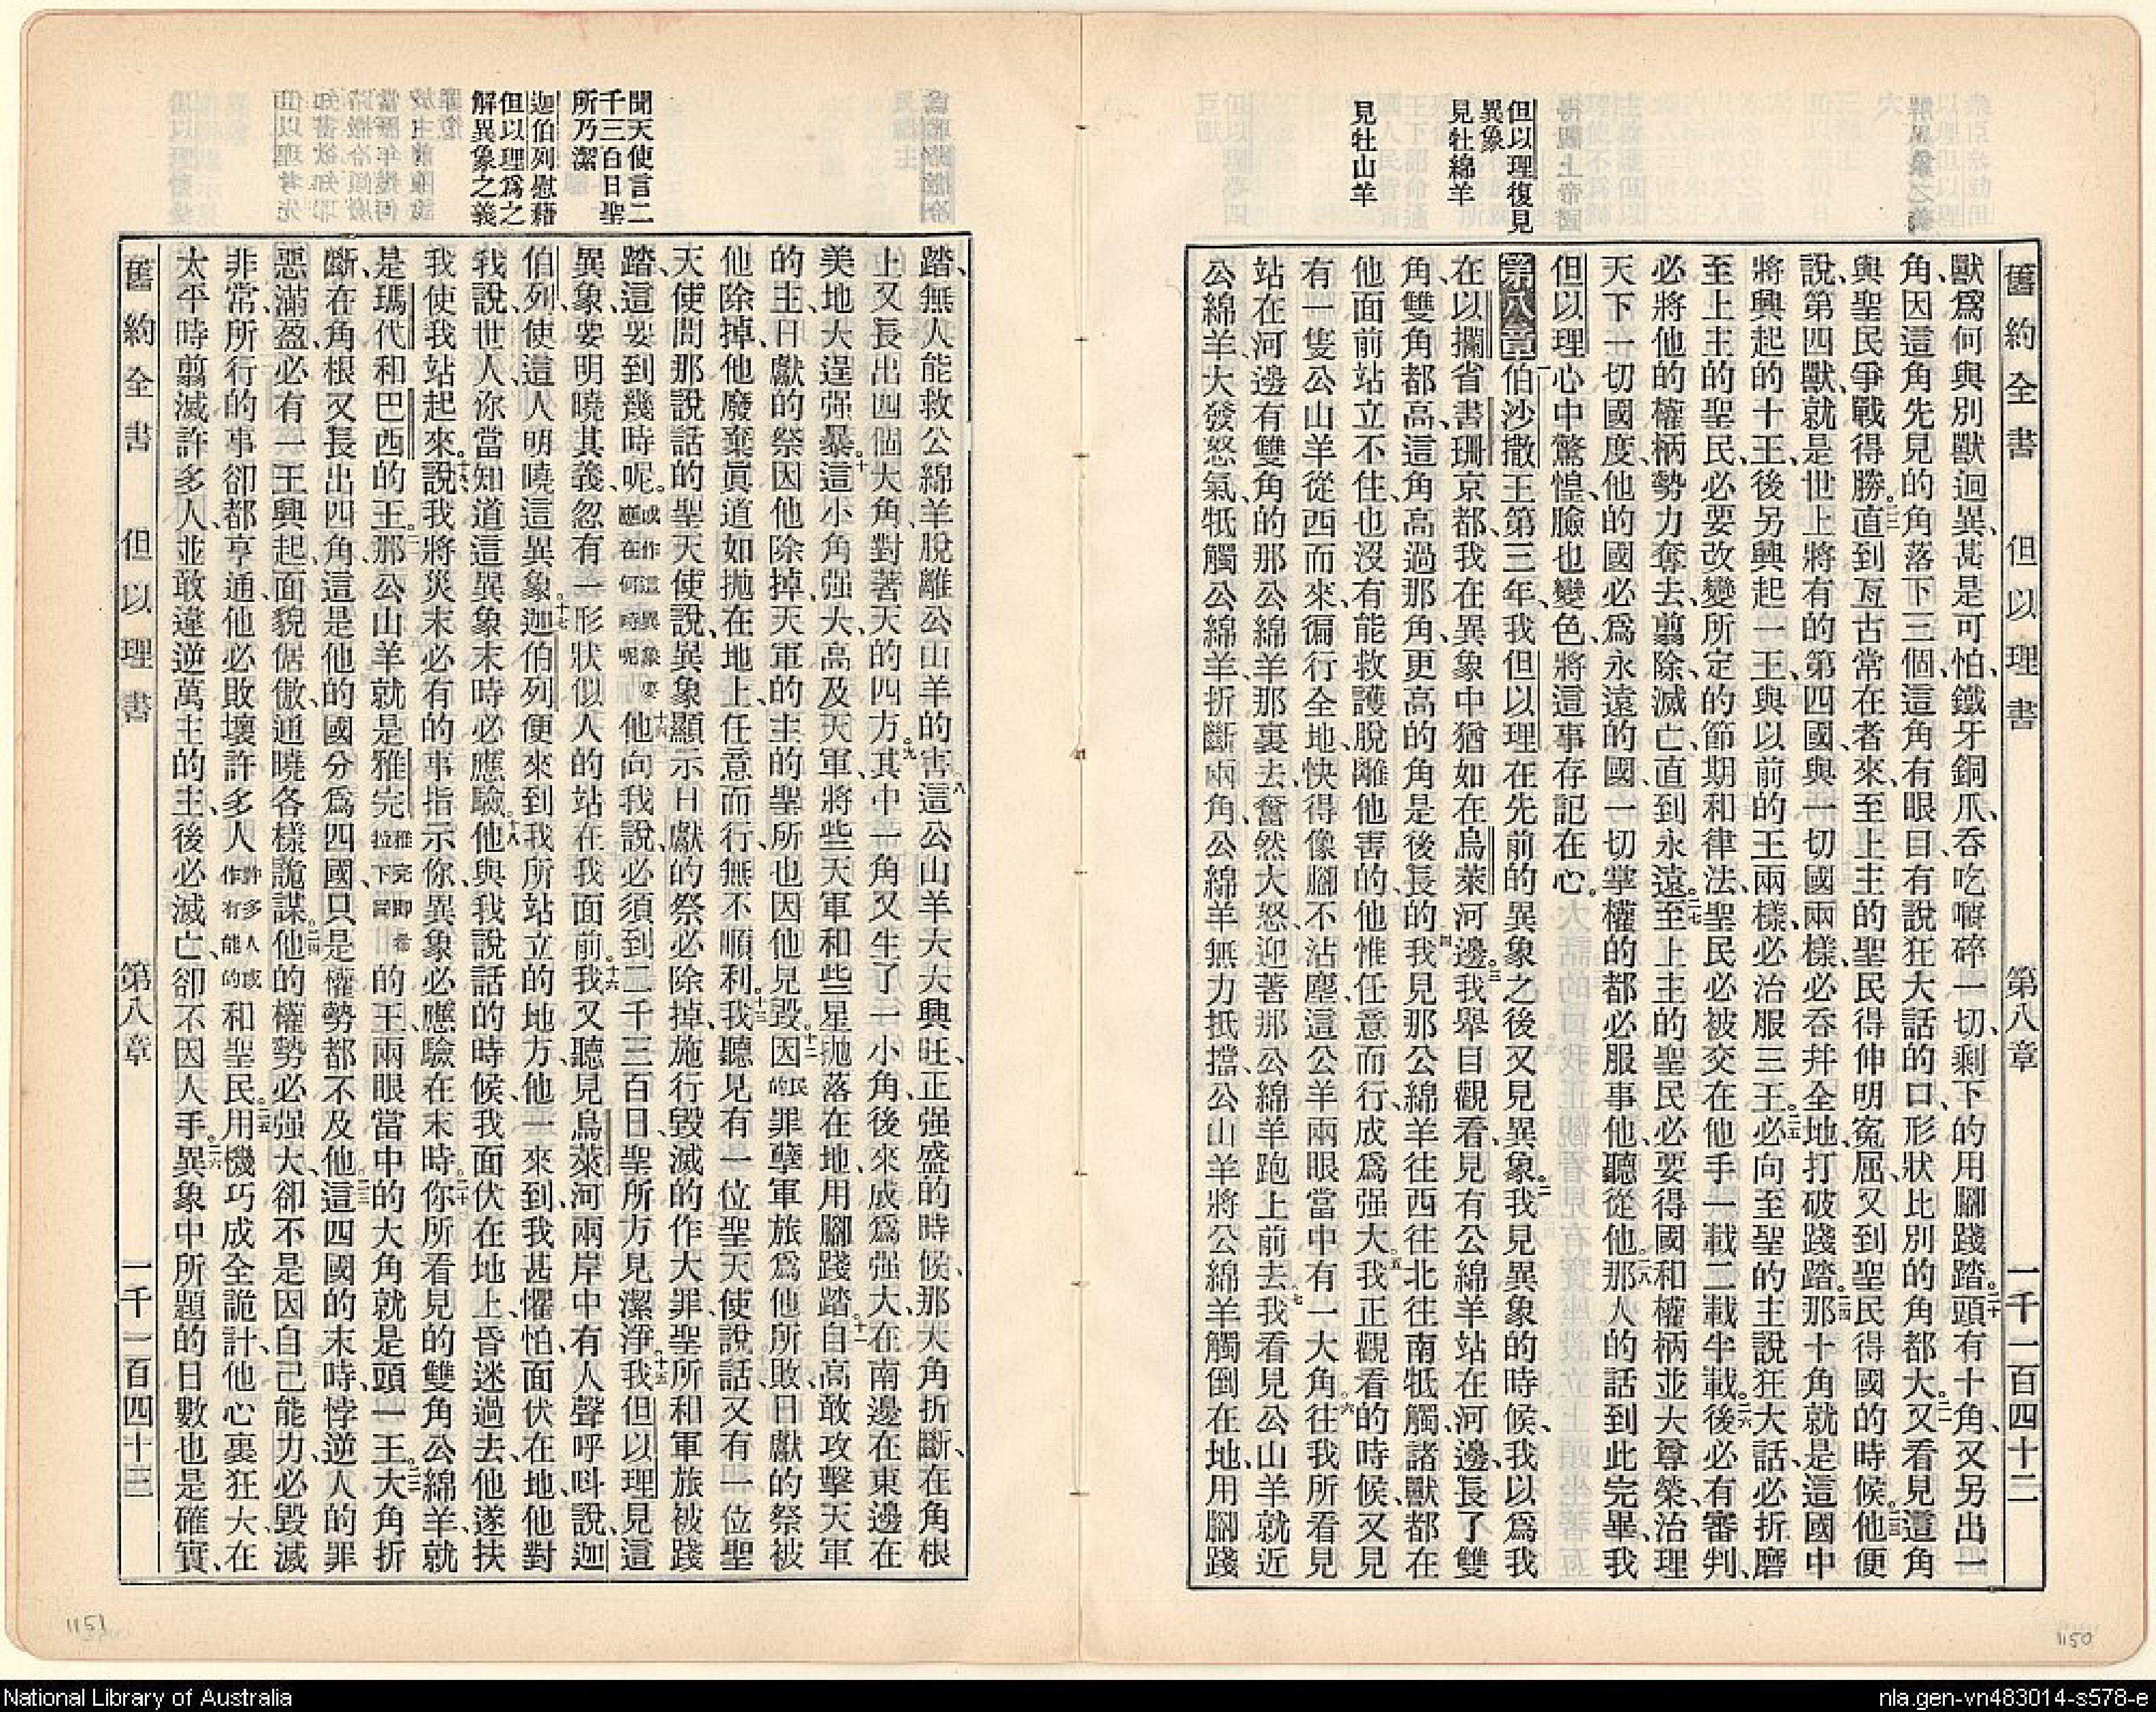 舊約全書　但以理書　第八章　一千一百四十二
獸爲何與別獸迥異、甚是可怕、鐵牙銅爪、吞吃嚼碎一切、剩下的用腳踐踏。二十頭有十角、又另出一
角、因這角先見的角落下三個、這角有眼目、有說狂大話的口、形狀比別的角都大。二一又看見這角
與聖民爭戰得勝。二二直到亙古常在者來、至上主的聖民得伸明寃屈、又到聖民得國的時候。二三他便
說、第四獸、就是世上將有的第四國、與一切國兩樣、必吞幷全地、打破踐踏。二四那十角就是這國中
將興起的十王、後另興起一王、與以前的王兩樣、必治服三王。二五必向至聖的主說狂大話、必折磨
至上主的聖民、必要改變所定的節期和律法、聖民必被交在他手一載二載半載。二六後必有審判、
必將他的權柄勢力奪去、翦除滅亡、直到永遠。二七至上主的聖民必要得國和權柄並大尊榮、治理
天下一切國度、他的國必爲永遠的國、一切掌權的都必服事他、聽從他。二八那人的話到此完畢、我
但以理心中驚惶、臉也變色、將這事存記在心。
但以理復見
異象
第八章一伯沙撒王第三年、我但以理在先前的異象之後又見異象。二我見異象的時候、我以爲我
見牡綿羊
在以攔省書珊京都、我在異象中猶如在烏萊河邊。三我舉目觀看、見有公綿羊站在河邊、長了雙
角、雙角都高、這角高過那角、更高的角是後長的。四我見那公綿羊往西往北往南牴觸、諸獸都在
見牡山羊
他面前站立不住、也沒有能救護脫離他害的、他惟任意而行、成爲强大。五我正觀看的時候、又見
有一隻公山羊從西而來、徧行全地、快得像腳不沾塵、這公羊兩眼當中有一大角。六往我所看見
站在河邊有雙角的那公綿羊那裏去、奮然大怒、迎著那公綿羊跑上前去。七我看見公山羊就近
公綿羊、大發怒氣、牴觸公綿羊、折斷兩角、公綿羊無力抵擋、公山羊將公綿羊觸倒在地、用腳踐
踏、無人能救公綿羊脫離公山羊的害。八這公山羊大大興旺、正强盛的時候、那大角折斷、在角根
上又長出四個大角、對著天的四方。九其中一角又生了一小角、後來成爲强大、在南邊在東邊在
美地大逞强暴。十這小角强大、高及天軍、將些天軍和些星抛落在地、用腳踐踏。十一自高敢攻擊天軍
的主、日獻的祭因他除掉、天軍的主的聖所也因他見毀。十二因民的罪孽、軍旅爲他所敗、日獻的祭被
他除掉、他廢棄眞道、如抛在地上、任意而行、無不順利。十三我聽見有一位聖天使說話、又有一位聖
天使問那說話的聖天使說、異象顯示日獻的祭必除掉、施行毀滅的作大罪、聖所和軍旅被踐
聞天使言二
千三百日聖
所乃潔
踏、這要到幾時呢。或作這異象要應在何時呢十四他向我說、必須到二千三百日、聖所方見潔淨。十五我但以理見這
異象、要明曉其義、忽有一形狀似人的站在我面前。十六我又聽見烏萊河兩岸中有人聲呼呌說、迦
迦伯列慰藉
但以理爲之
解異象之義
伯列、使這人明曉這異象。十七迦伯列便來到我所站立的地方、他一來到、我甚懼怕、面伏在地、他對
我說、世人、你當知道這異象末時必應驗。十八他與我說話的時候、我面伏在地上、昏迷過去、他遂扶
我使我站起來。十九說、我將災末必有的事指示你、異象必應驗在末時。二十你所看見的雙角公綿羊、就
是瑪代和巴西的王。二一那公山羊就是雅完雅完即希拉下同的王、兩眼當中的大角就是頭一王。二二大角折
斷、在角根又長出四角、這是他的國分爲四國、只是權勢都不及他。二三這四國的末時、悖逆人的罪
惡滿盈、必有一王興起、面貌倨傲、通曉各樣詭謀。二四他的權勢必强大、卻不是因自己能力、必毀滅
非常、所行的事卻都亨通、他必敗壞許多人許多人或作有能的和聖民。二五用機巧成全詭計、他心裏狂大、在
太平時翦滅許多人、並敢違逆萬主的主、後必滅亡、卻不因人手。二六異象中所題的日數也是確實、
舊約全書　但以理書　第八章　一千一百四十三
1151
1150
National Library of Australia
nla.gen-vn483014-s578-e